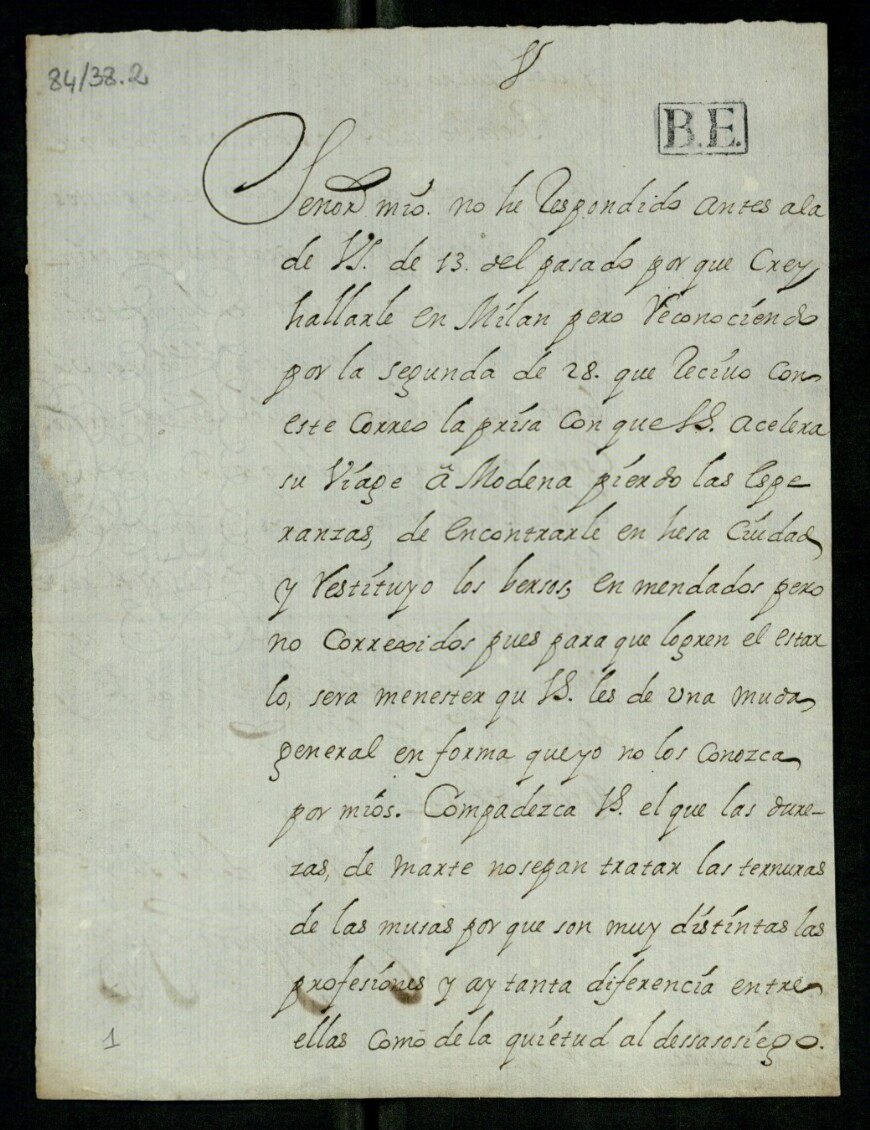 84/38.2
B.E.
Señor mio. no he Respondido antes ala
de VS. de 13. del pasado por que Crey
hallarle en Milan pero Reconociendo
por la segunda de 28. que Recivo con
este Correo la prisa con que VS. acelera
su Viage â Modena pierdo las Espe
ranzas, de encontrarle en hesa Ciudad
y Restituyo los bersos, en mendados pero
no Correxidos pues para que logren el estar
lo, sera menester qu VS. les de una muda
general en forma que yo no los Conozca
por mios. Compadezca VS. el que las dure-
zas, de marte no sepan tratar las ternuras
de las musas por que son muy distintas las
profesiones y ay tanta diferencia entre
ellas como de la quietud al dessasosiego.
1